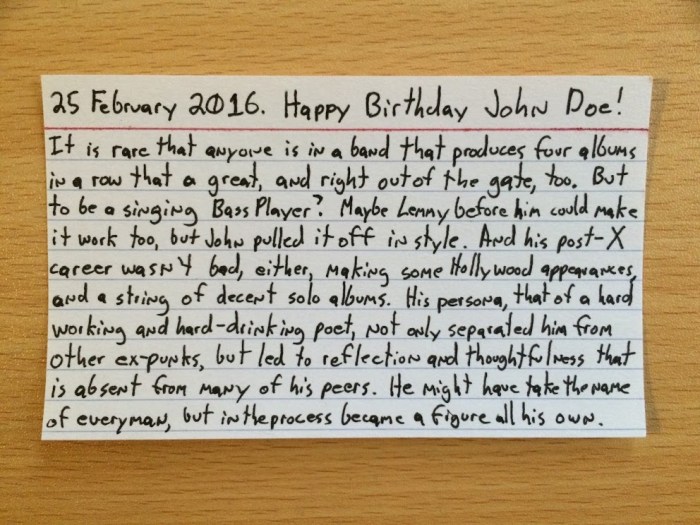 25 February 2016. Happy Birthday John Doe!
It is rare that anyone is in a band that produces four albums
in a row that a great, and right out of the gate, too. But
to be a singing Bass Player? Maybe Lemmy before him could make
it work too, but John pulled it off in style. And his post-X
career wasn't bad, either, making some Hollywood appearances,
and a string of decent solo albums. His persona, that of a hard
working and hard-drinking poet, not only separated him from
other ex-punks, but led to reflection and thoughtfulness that
is absent from many of his peers. He might have take the name
of everyman, but in the process became a figure all his own.